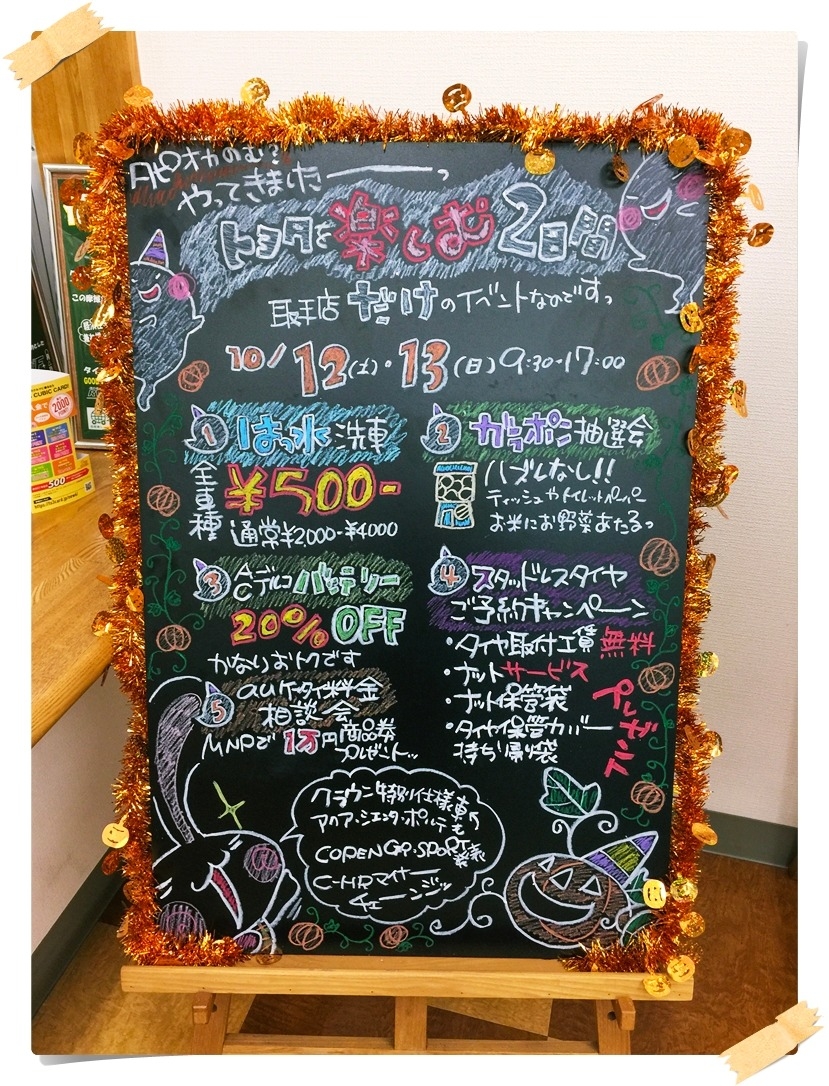 タピオカのむ?
やってきましたーっ
トヨタを楽しむ2日間
取手店だけのイベントなのですっ
10/12(土)・13(日)9:30-17:00
1 はっ水洗車
全車種
¥500-
通常¥2,000-¥4000
2 ガラポン抽選会
ハズレなし!!
ティッシュやトイレットペーパー
お米にお野菜あたるっ
3 ACデルコバッテリー
20%OFF
かなりおトクです
4 スタッドレスタイヤ
ご予約キャンペーン
・タイヤ取付工賃 無料
・ナットサービス
・ナット保管袋
・タイヤ保管カバー
持ち帰り袋
プレゼント
5 auケータイ料金
相談会
MNPで1万円商品券
プレゼント
クラウン特別仕様車
アクア・シエンタ・ポルテも
COPEN GR・SPORT
C-HRマイナー
チェーンジッ
CUBIC CARD!
2000
500
この摩擦